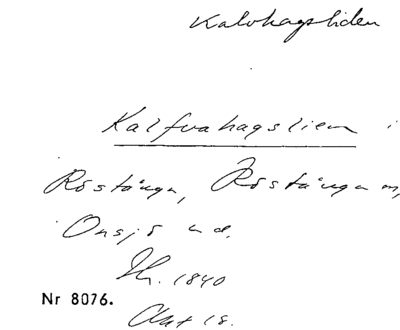 Kalvhagsliden
Kalfvahagslien i
Röstånga, Röstånga sn,
Onsjö hd.
Sk. 1840
Nr 8076.
Akt 18.